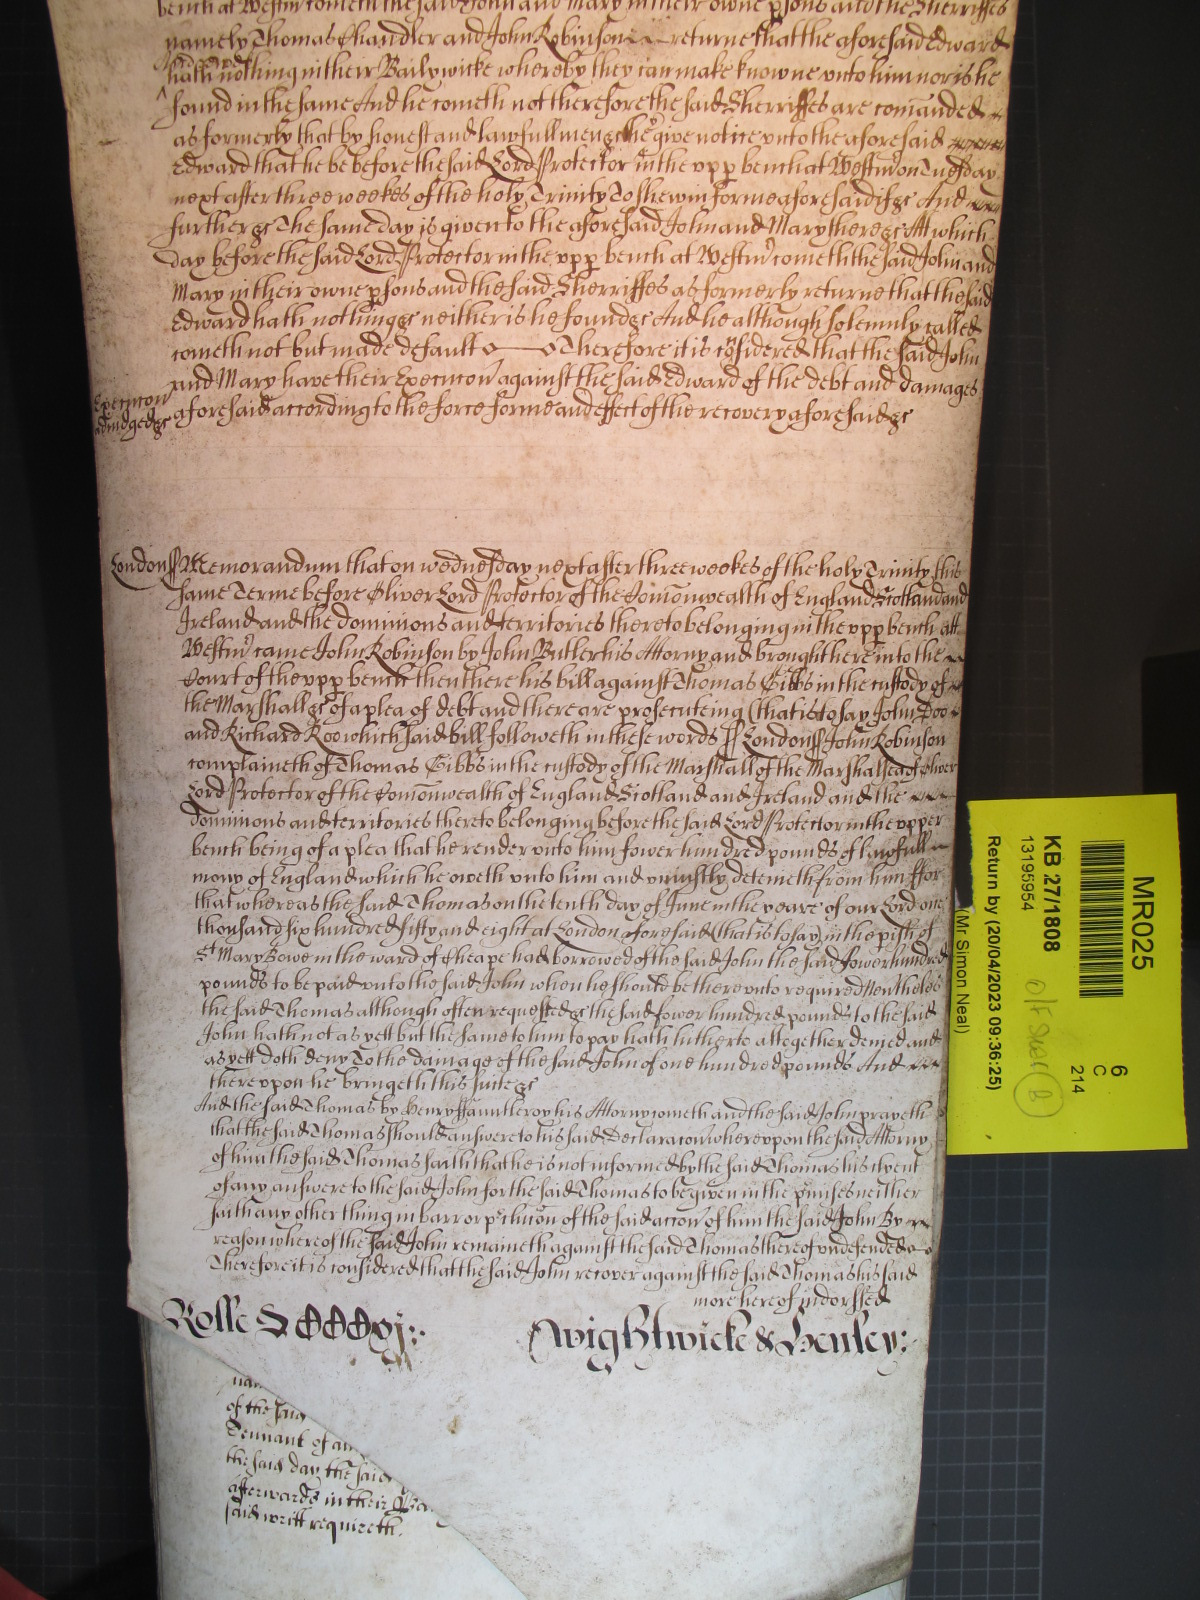 bench at Westmr cometh the said John and Mary in their owne psons and the Sherriffes
namely Thomas Chandler and John Robinson returne that the aforesaid Edward
hath nothing in their Bailywicke whereby they can make knowne unto him nor is he
found in the same And he cometh not therefore the said Sherriffes are comanded
as formerly that by honest and lawfull men &c he give notice unto the aforesaid
Edward that he be before the said Lord Protector in the upp bench at Westmr on Tuesday
next after three weekes of the holy Trinity To shew in forme aforesaid if &c And
further &c The same day is given to the aforesaid John and Mary there &c Att which
day before the said Lord Protector in the upp bench at Westmr cometh the said John and
Mary in their owne psons and the said Sherriffes as formerly returne that the said
Edward hath nothing &c neither is he found &c And he although solemnly called
cometh not but made default Therefore it is considered that the said John
and Mary have their Execucon against the said Edward of the debt and damages
Execucon
adiudged &c
aforesaid according to the force forme and effect of the recovery aforesaid &c
London ss Memorandum that on wednesday next after three weekes of the holy Trinity this
same Terme before Oliver Lord Protector of the Comonwealth of England Scotland and
Ireland and the dominions and territories thereto belonging in the upp bench att
Westmr came John Robinson by John Butler his Attorny and brought here into the
Court of the upp bench then there his bill against Thomas Gibbs in the custody of
the Marshall &c of a plea of debt and there are prosecuteing (that is to say John Doo
and Richard Roo which said bill followeth in these words ss London ss John Robinson
complaineth of Thomas Gibbs in the custody of the Marshall of the Marshalsea of Oliver
Lord Protector of the Comonwealth of England Scotland and Ireland and the
dominions and territories thereto belonging before the said Lord Protector in the upper
bench being of a plea that he render unto him fower hundred pounds of lawfull
mony of England which he oweth unto him and uniustly deteineth from him ffor
that whereas the said Thomas on the tenth day of June in the yeare of our Lord one
thousand six hundred fifty and eight at London aforesaid (that is to say) in the pish of
St Mary Bowe in the ward of Cheape had borrowed of the said John the said fower hundred
pounds to be paid unto the said John when he should be thereunto required Nevtheles
the said Thomas although often requested &c the said fower hundred pounds to the said
John hath not as yett but the same to him to pay hath hitherto altogether denied and
as yett doth deny To the damage of the said John of one hundred pounds And
thereupon he bringeth his suite &c
And the said Thomas by Henry ffauntleroy his Attorny cometh and the said John prayeth
that the said Thomas should answere to his said Declaracon whereupon the said Attorny
of him the said Thomas saith that he is not informed by the said Thomas his clyent
of any answere to the said John for the said Thomas to be given in the pmises neither
saith any other thing in barr or pclucon of the said accon of him the said John By
reason whereof the said John remaineth against the said Thomas thereof undefended
Therefore it is considered that the said John recover against the said Thomas his said
more hereof indorssed
Rolle
Wightwicke & Henley:
of the said
Tennant of an
the said day the said
afterwards in their
said writt requireth.
MR025
KB 27/1808
13195954
Return by (20/04/2023 09:36:25)
(Mr Simon Neal)
6
C
214
B